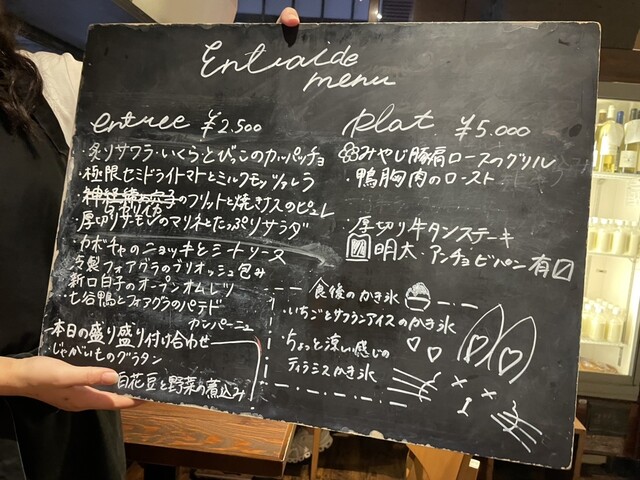 Entraide
menu
entree ¥2,500
・炙りサワラ・いくらとびっこのカルパッチョ
・極限セミドライトマトとミルクモッツァレラ
のフリットと焼きナスのピュレ
・厚切りサーモンのマリネとたっぷりサラダ
・カボチャのニョッキとミートソース
特製フォアグラのブリオッシュ包み
新口白子のオーブンオムレツ
・七谷鴨とフォアグラのパテド
カンパーニュ
本日の盛り盛り付け合わせ
じゃがいものグラタン
白花豆と野菜の煮込み
plat ¥5.000
みやじ豚肩ロースのグリル
・鴨胸肉のロースト
・厚切り牛タンステーキ
明太・アンチョビパン有
食後のかき氷
・いちごとサフランアイスのかき氷
・ちょっと涼い感じの
ティラミスかき氷